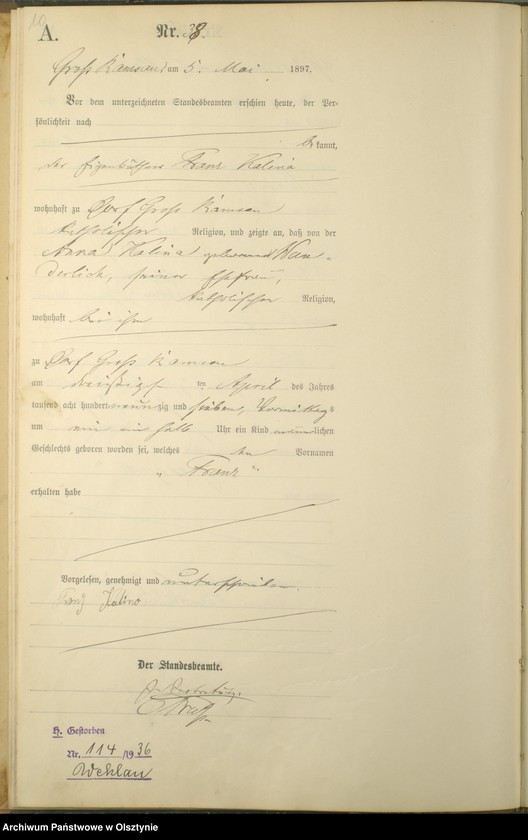 A.
Nr. 38.
Groß Kamsen am 5. Mai 1897.
Vor dem unterzeichneten Standesbeamten erschien heute, der Per-
sönlichkeit nach
kannt,
der Eigenkäthner Franz Kalina
wohnhaft zu Dorf Groß Kamsen
katholischer Religion, und zeigte an, daß von der
Anna Kalina geborenen Wun-
derlich, seiner Ehefrau,
katholischer Religion,
wohnhaft bei ihm
zu Dorf Groß Kamsen
am dreißigsten April des Jahres
tausend acht hundert neunzig und sieben, Vormittags
um ein halb Uhr ein Kind männlichen
Geschlechts geboren worden sei, welches den Vornamen
„Franz“
erhalten habe
Vorgelesen, genehmigt und unterschrieben.
Franz Kalina
Der Standesbeamte.
In Vertretung.
H. Gestorben
Nr. 114 /1936
Wehlau
Archiwum Państwowe w Olsztynie